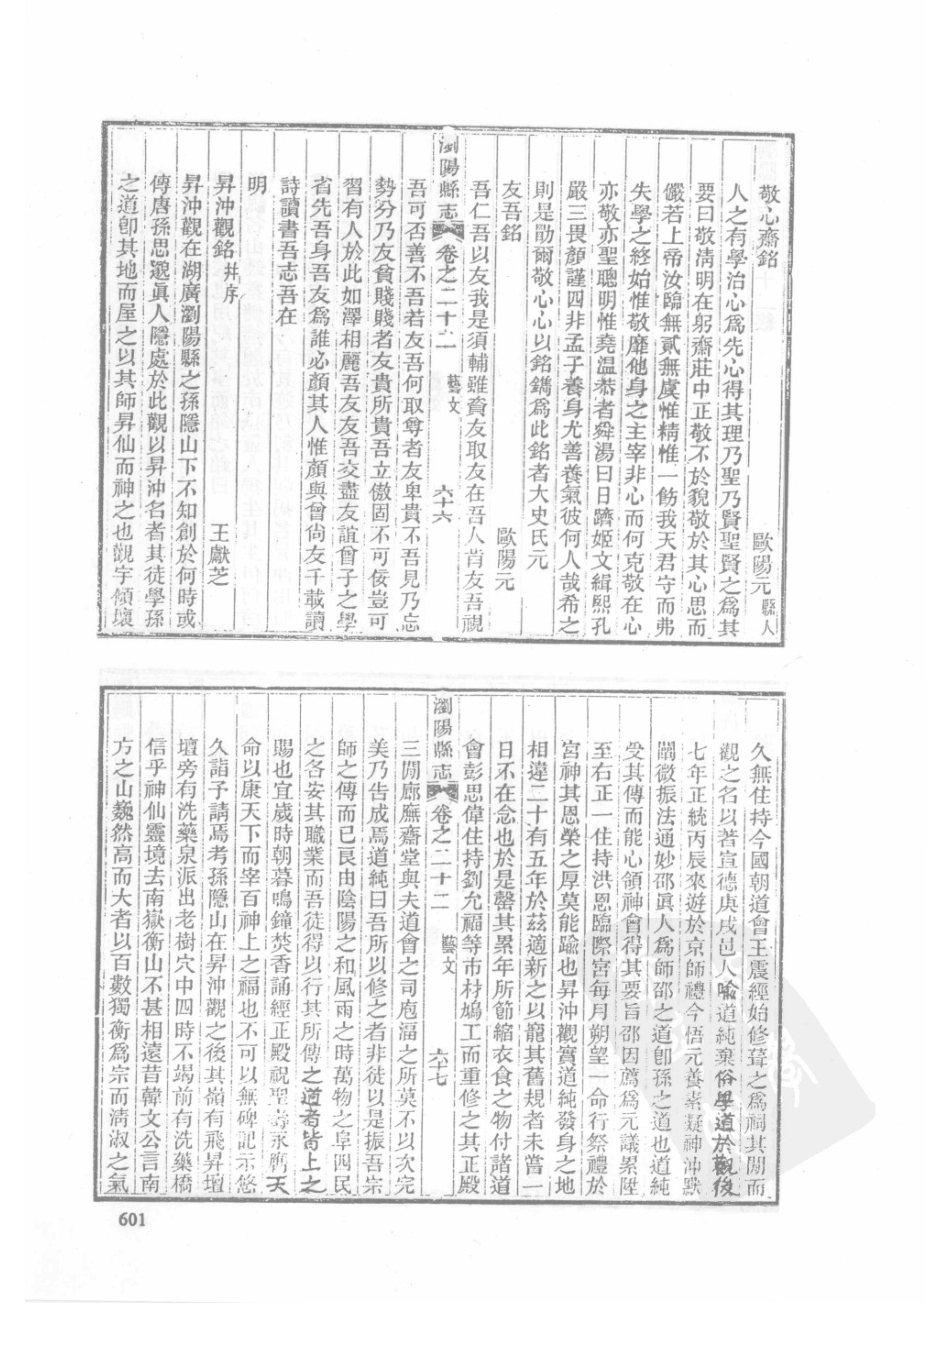 敬心齋銘 歐陽元縣人
人之有學治心爲先心得其理乃聖乃賢聖賢之爲其
要曰敬淸明在躬齋莊中正敬不於貌敬於其心思而
儼若上帝汝臨無貳無虞惟精惟一飭我天君守而弗
失學之終始惟敬靡他身之主宰非心而何克敬在心
亦敬亦聖聰明惟堯溫恭者舜湯曰日躋姬文緝熙孔
嚴三畏顏謹四非孟子養身尤善養氣彼何人哉希之
則是勖爾敬心心以銘鐫爲此銘者大史氏元
友吾銘 歐陽元
吾仁吾以友我是須輔雖資友取友在吾人肯友吾視
瀏陽縣志 卷之二十二 藝文 六十六
吾可否善不吾若友吾何取尊者友卑貴不吾見乃忘
勢分乃友貧賤賤者友貴所貴吾立傲固不可佞豈可
習有人於此如澤相麗吾友友吾交盡友誼曾子之學
省先吾身吾友爲誰必顏其人惟顏與曾尙友千載讀
詩讀書吾志吾在
明
昇沖觀銘幷序 王獻芝
昇沖觀在湖廣瀏陽縣之孫隱山下不知創於何時或
傳唐孫思邈眞人隱處於此觀以昇沖名者其徒學孫
之道卽其地而屋之以其師昇仙而神之也觀宇傾壞
久無住持今國朝道會王震經始修葺之爲祠其閒而
觀之名以著宣德庚戌邑人喻道純棄俗學道於觀後
七年正統丙辰來遊於京師禮今悟元養素凝神沖默
闡微振法通妙邵眞人爲師邵之道卽孫之道也道純
受其傳而能心領神會得其要旨邵因薦爲元議累陞
至右正一住持洪恩臨際宮每月朔望一命行祭禮於
宮神其恩榮之厚莫能踰也昇沖觀實道純發身之地
相違二十有五年於茲適新之以寵其舊規者未嘗一
日不在念也於是罄其累年所節縮衣食之物付諸道
會彭思偉住持劉允福等市材鳩工而重修之其正殿
瀏陽縣志 卷之二十二 藝文 六十七
三閒廊廡齋堂與夫道會之司庖湢之所莫不以次完
美乃吿成焉道純曰吾所以修之者非徒以是振吾宗
師之傳而已良由陰陽之和風雨之時萬物之阜四民
之各安其職業而吾徒得以行其所傳之道者皆上之
賜也宜歲時朝暮鳴鐘焚香誦經正殿祝聖壽永膺天
命以康天下而宰百神上之福也不可以無碑記示悠
久詣予請焉考孫隱山在昇沖觀之後其嶺有飛昇壇
壇旁有洗藥泉派出老樹穴中四時不竭前有洗藥橋
信乎神仙靈境去南嶽衡山不甚相遠昔韓文公言南
方之山巍然高而大者以百數獨衡爲宗而淸淑之氣
601